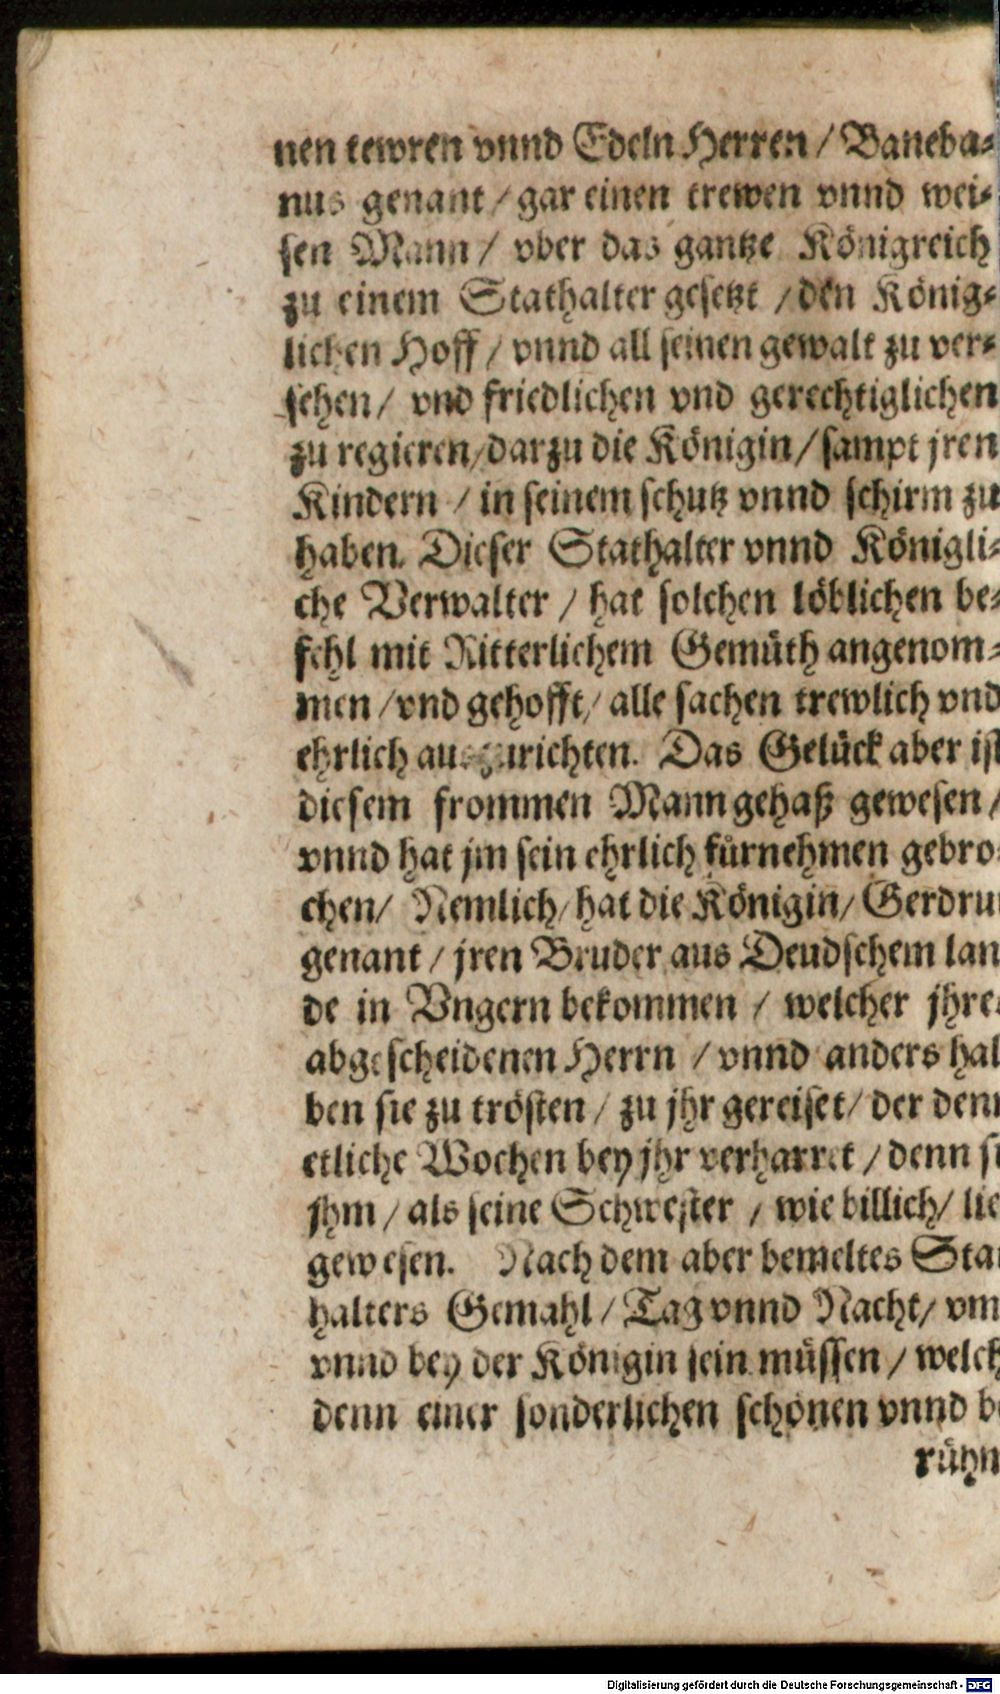 nen tewren vnnd Edeln Herren / Baneba-
nus genant / gar einen trewen vnnd wei-
sen Mann / vber das gantze Königreich
zu einem Stathalter gesetzt / den König-
lichen Hoff / vnnd all seinen gewalt zu ver-
sehen / vnd friedlichen vnd gerechtiglichen
zu regieren / darzu die Königin / sampt jren
Kindern / in seinem schutz vnnd schirm zu
haben. Dieser Stathalter vnnd Königli-
che Verwalter / hat solchen löblichen be-
fehl mit Ritterlichem Gemüth angenom-
men / vnd gehofft / alle sachen trewlich vnd
ehrlich auszurichten. Das Gelück aber ist
diesem frommen Mann gehaß gewesen /
vnnd hat jm sein ehrlich fürnehmen gebro-
chen / Nemlich / hat die Königin / Gerdru
genant / jren Bruder aus Deudschem lan
de in Vngern bekommen / welcher jhre
abgescheidenen Herrn / vnnd anders hal
ben sie zu trösten / zu jhr gereiset / der den
etliche Wochen bey jhr verharret / denn si
jhm / als seine Schwester / wie billich / lie
gewesen. Nach dem aber bemeltes Sta
halters Gemahl / Tag vnnd Nacht / vm
vnnd bey der Königin sein müssen / welch
denn einer sonderlichen schönen vnnd b
rühm
Digitalisierung gefördert durch die Deutsche Forschungsgemeinschaft - DFG